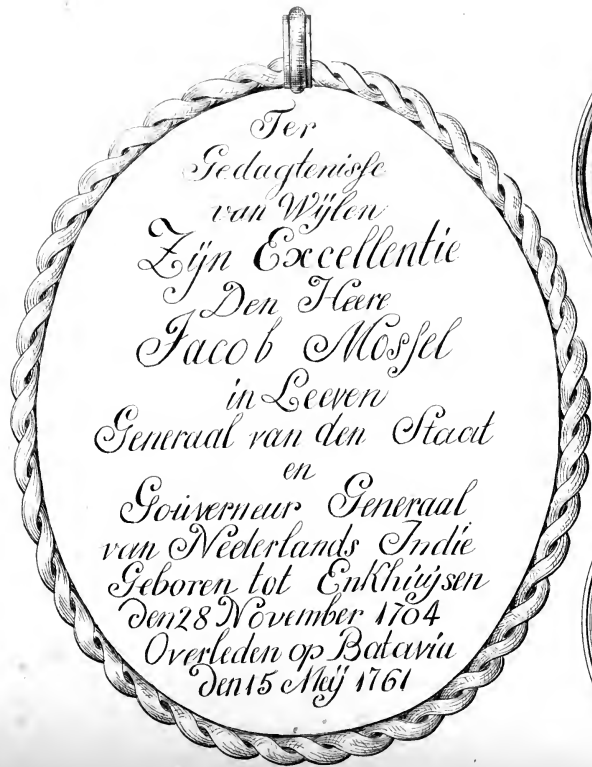 Ter
Gedagtenisse
van Wijlen
Zijn Excellentie
Den Heere
Jacob Mossel
in Leeven
Generaal van den Staat
en
Gouverneur Generaal
van Neederlands Indie
Geboren tot Enkhuijsen
Den 28 November 1704
Overleden op Batavia
Den 15 Meij 1761